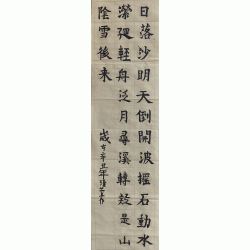 日落沙明天倒開波搖石動水
縈迴輕舟泛月尋溪轉疑是山
陰雪後來
歲在辛丑年